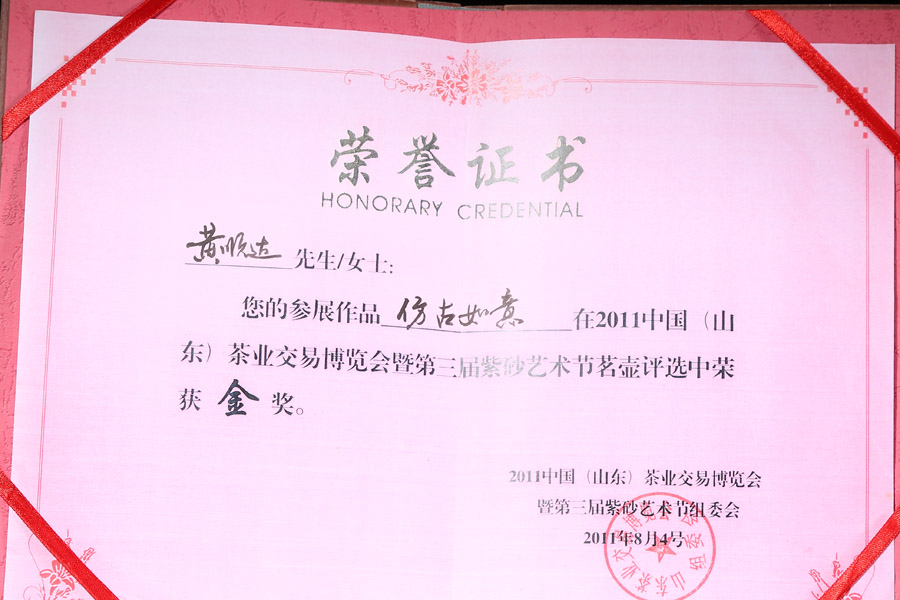 荣誉证书
HONORARY CREDENTIAL
黄顺达 先生/女士:
您的参展作品 仿古如意 在2011中国（山
东）茶业交易博览会暨第三届紫砂艺术节茗壶评选中荣
获 金 奖。
2011中国（山东）茶业交易博览会
暨第三届紫砂艺术节组委会
2011年8月4号